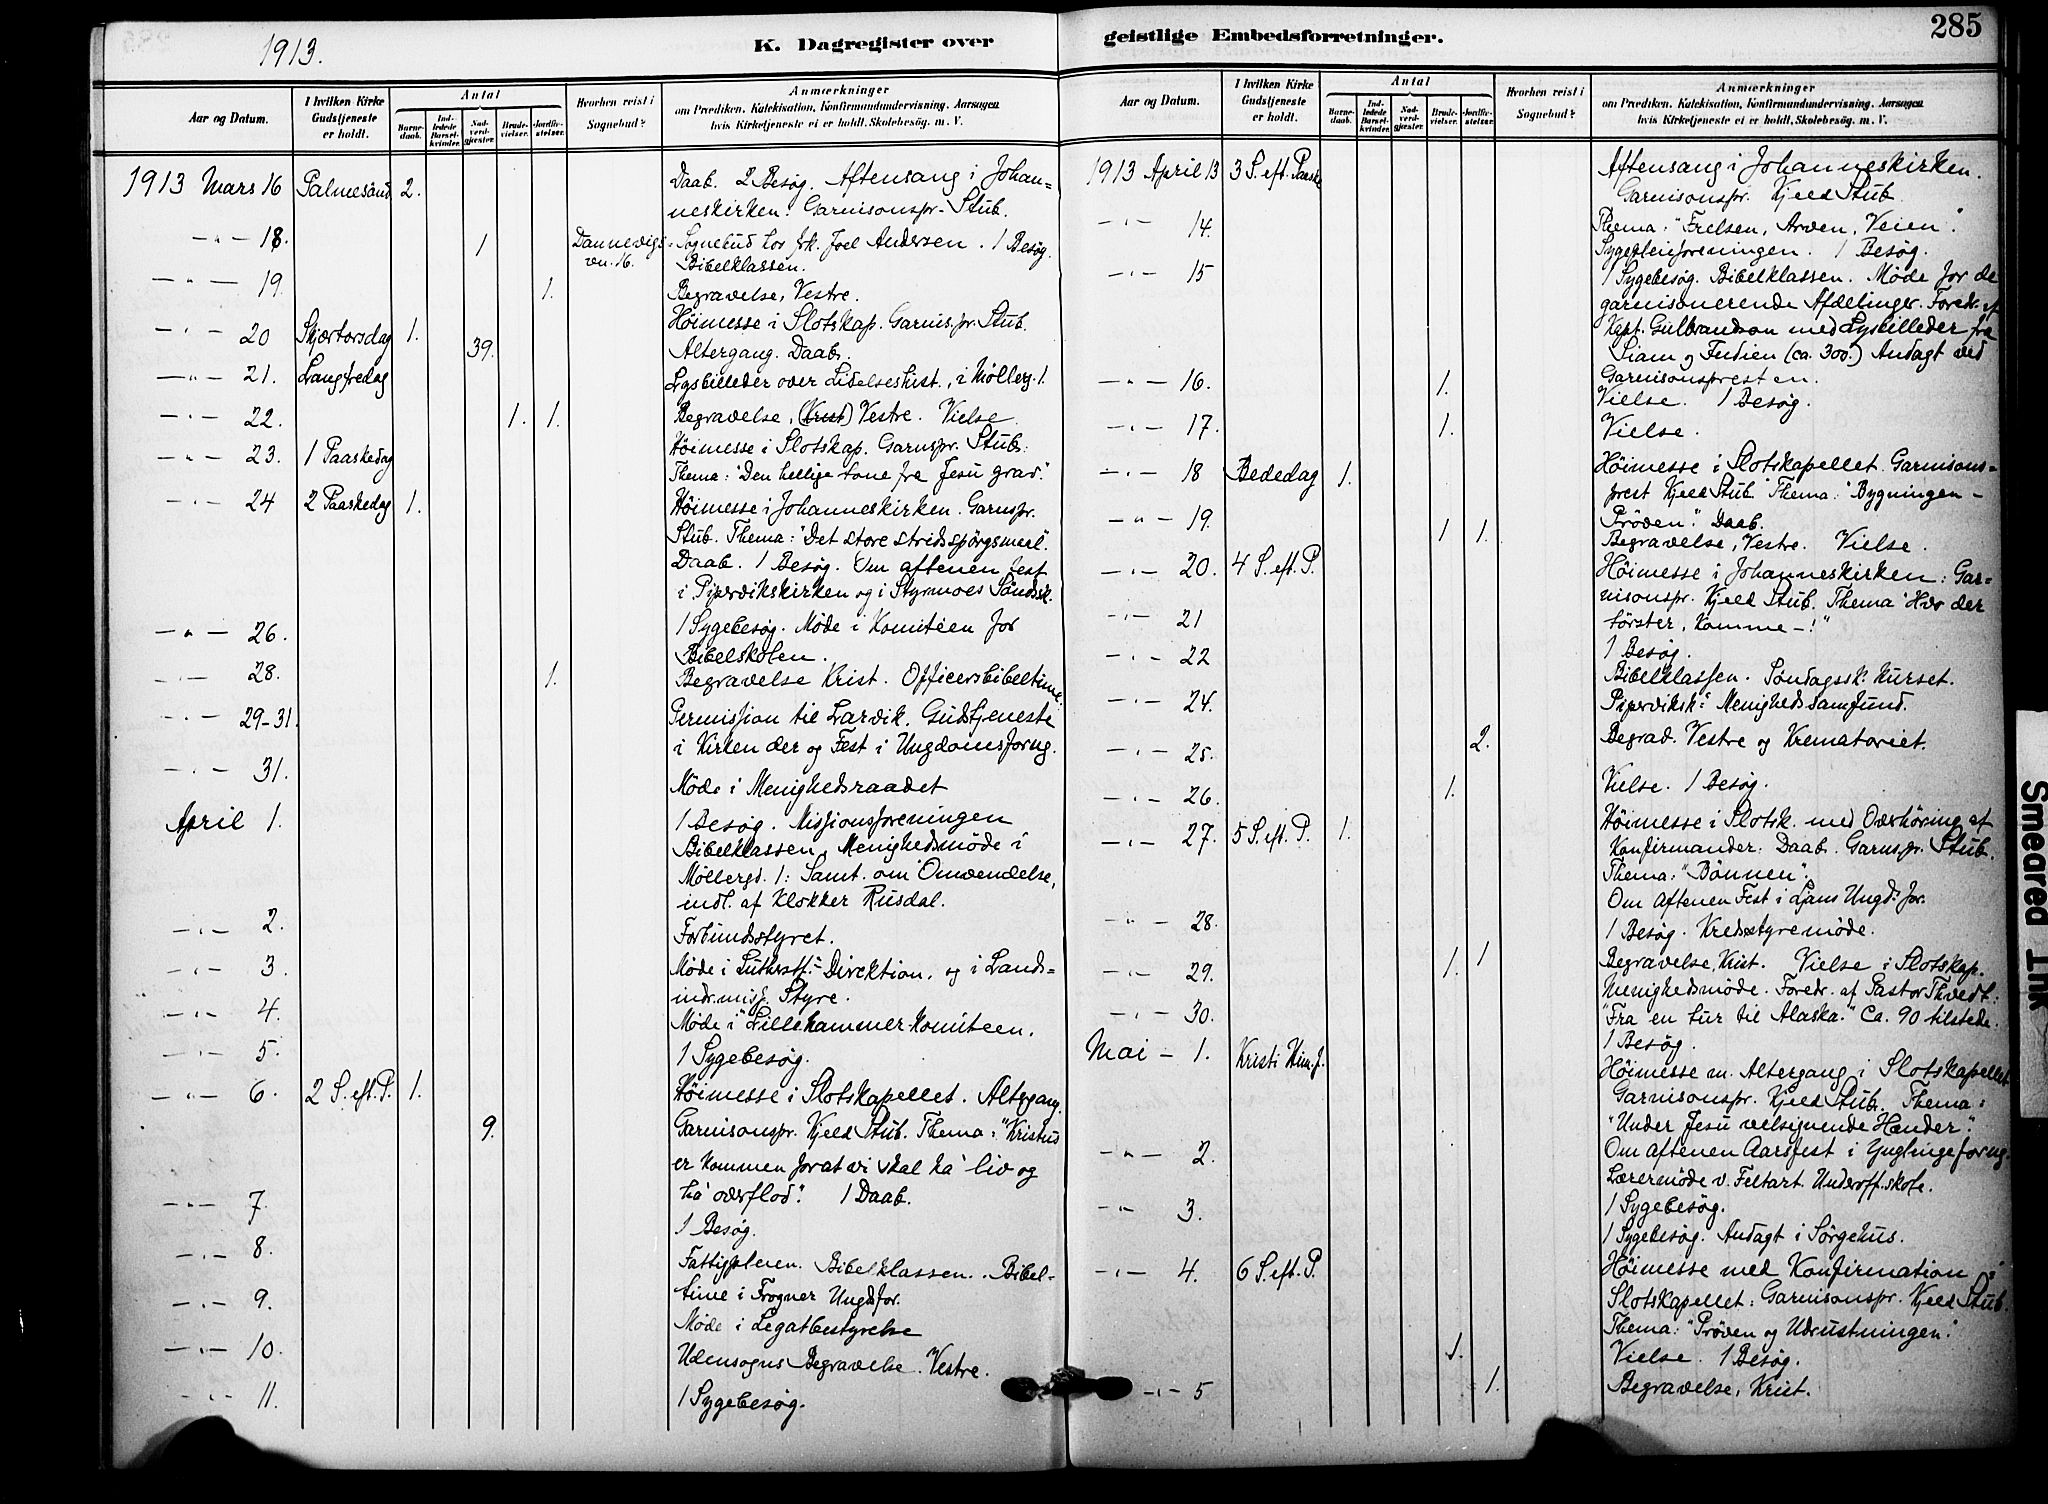 1913.
K. Dagregister over
Aar og Datum.
I hvilken Kirke
Gudstjeneste
er holdt.
Antal
Barne-
daab.
Ind-
ledede
Barsel-
kvinder.
Nad-
verd-
gjæster.
Brude-
vielser.
Jordfæ-
stelser.
Hvorhen reist i
Sognebud?
Anmærkninger
om Prædiken, Katekisation, Konfirmandundervisning, Aarsagen
hvis Kirketjeneste ei er holdt, Skolebesøg. m. V.
1913 Mars 16 Palmesönd 2. Daab. 2 Besøg. Aftensang i Johan=
neskirken: Garnisonspr. Stub.
— „ — 18. 1 Dannevigs- Sognebud hos frk. Joel Andersen. 1 Besøg.
vn. 16. Bibelklassen.
— „ — 19. 1. Begravelse, Vestre.
Höimesse i Slotskap. Garnis.pr. Stub.
— „ — 20 Skjærtorsdag 1. 39. Altergang. Daab.
— „ — 21. Langfredag Lysbilleder over Lidelseshist., i Møllerg. 1.
— „ — 22. 1. 1. Begravelse, (Krist) Vestre. Vielse
Höimesse i Slotskap. Garnspr. Stub.
— „ — 23. 1 Paaskedag Thema: "Den hellige tone fra Jesu grav."
— „ — 24 2 Paaskedag 1. Höimesse i Johanneskirken. Garnspr.
Stub. Thema: "Det store stridsspörgsmaal".
Daab. 1 Besøg. Om aftenen fest
i Pipervikskirken og i Styrmoes Søndssk.
— „ — 26. 1 Sygebesøg. Møde i Komiteen for
Bibelskolen.
— „ — 28. 1. Begravelse Krist. Officersbibeltime.
— „ — 29-31. Permission til Larvik. Gudstjeneste
i Kirken der og Fest i Ungdomsforng.
— „ — 31. Møde i Menighedsraadet
April 1. 1 Besøg. Missionsforeningen
Bibelklassen, Menighedsmöde i
Møllergd. 1: Samt. om Omvendelse,
indl. af Klokker Rusdal.
— „ — 2. Forbundsstyret.
— „ — 3. Møde i Lutherstf. Direktion, og i Lands=
indr.miss. Styre.
— „ — 4. Møde i "Lillehammer Komiteen.
— „ — 5. 1 Sygebesøg.
— „ — 6. 2 S. eft. P. 1. Höimesse i Slotskapellet. Altergang
9. Garnisonspr. Kjeld Stub. Thema: "Kristus
er kommen forat vi skal ha' liv og
ha' overflod". 1 Daab.
— „ — 7. 1 Besøg.
— „ — 8. Fattigpleien. Bibelklassen. Bibel-
time i Frogner Ungdsfor.
— „ — 9. Møde i Legatbestyrelse
— „ — 10. Udensogns Begravelse. Vestre.
— „ — 11. 1 Sygebesøg.
geistlige Embedsforretninger.
285
Aar og Datum.
I hvilken Kirke
Gudstjeneste
er holdt.
Antal
Barne-
daab.
Ind-
ledede
Barsel-
kvinder.
Nad-
verd-
gjæster.
Brude-
vielser.
Jordfæ-
stelser.
Hvorhen reist i
Sognebud?
Anmærkninger
om Prædiken, Katekisation, Konfirmandundervisning, Aarsagen
hvis Kirketjeneste ei er holdt, Skolebesøg. m. V.
1913 April 13 3 S. eft. Paaske Aftensang i Johanneskirken.
Garnisonspr. Kjeld Stub
Thema: "Frelsen, Arven, Veien".
— „ — 14. Sygepleieforeningen. 1 Besøg.
— „ — 15 1 Sygebesøg. Bibelklassen. Møde for de
garnisonerende Afdelinger. Foredr. af
Kapt. Gulbrandson med Lysbilleder fra
Siam og Indien (ca. 300.) Andagt ved
Garnisonspresten.
— „ — 16. 1. Vielse. 1 Besøg.
— „ — 17. 1. Vielse.
— „ — 18 Bededag 1. Höimesse i Slotskapellet. Garnisons=
prest Kjeld Stub Thema: "Bygningen -
Pröven". Daab.
— „ — 19. 1 1. Begravelse, Vestre. Vielse.
— „ — 20. 4 S. eft. P. Höimesse i Johanneskirken: Gar=
nisonspr. Kjeld Stub. Thema "Hvo der
törster, komme -!"
— „ — 21 1 Besøg.
— „ — 22 Bibelklassen. Söndagssk. Kurset.
— „ — 24. Piperviksk: Menighedssamfund.
— „ — 25. 2. Begrav. Vestre og Krematoriet.
— „ — 26. 1. Vielse. 1 Besøg.
— „ — 27. 5 S. eft. P. 1. Höimesse i Slotsk. med Overhöring af
Konfirmander: Daab. Garnspr. Stub.
Thema: "Bönnen".
Om Aftenen Fest i Ljans Ungd. for.
— „ — 28. 1 Besøg. Kredsstyremøde.
— „ — 29. 1. 1 Begravelse, Krist. Vielse i Slotskap.
Menighedsmöde. Foredr. af Pastor Thvedt.
— „ — 30. "Fra en tur til Alaska." Ca. 90 tilstede.
1 Besøg.
Mai — 1. Kristi Him. f. Höimesse m. Altergang i Slotskapellet
Garnisonspr. Kjeld Stub. Thema:
"Under Jesu velsignende Hænder".
Om aftenen Aarsfest i Ynglingeforng.
— „ — 2. Lærermöde v. Feltart. Underoff.skole.
1 Sygebesøg.
— „ — 3. 1 Sygebesøg. Andagt i Sörgehus.
— „ — 4. 6 S. eft. P. Höimesse med Konfirmation i
Slotskapellet: Garnisonspr. Kjeld Stub.
Thema: "Pröven og Udrustningen."
1. Vielse. 1 Besøg.
— „ — 5 1. Begravelse, Krist.
Smeared Ink